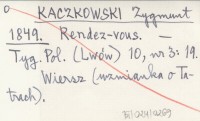 KACZKOWSKI Zygmunt
1849. Rendez-vous. —
Tyg. Pol. (Lwów) 10, nr 3: 19.
Wiersz (wzmianka o Ta-
trach).